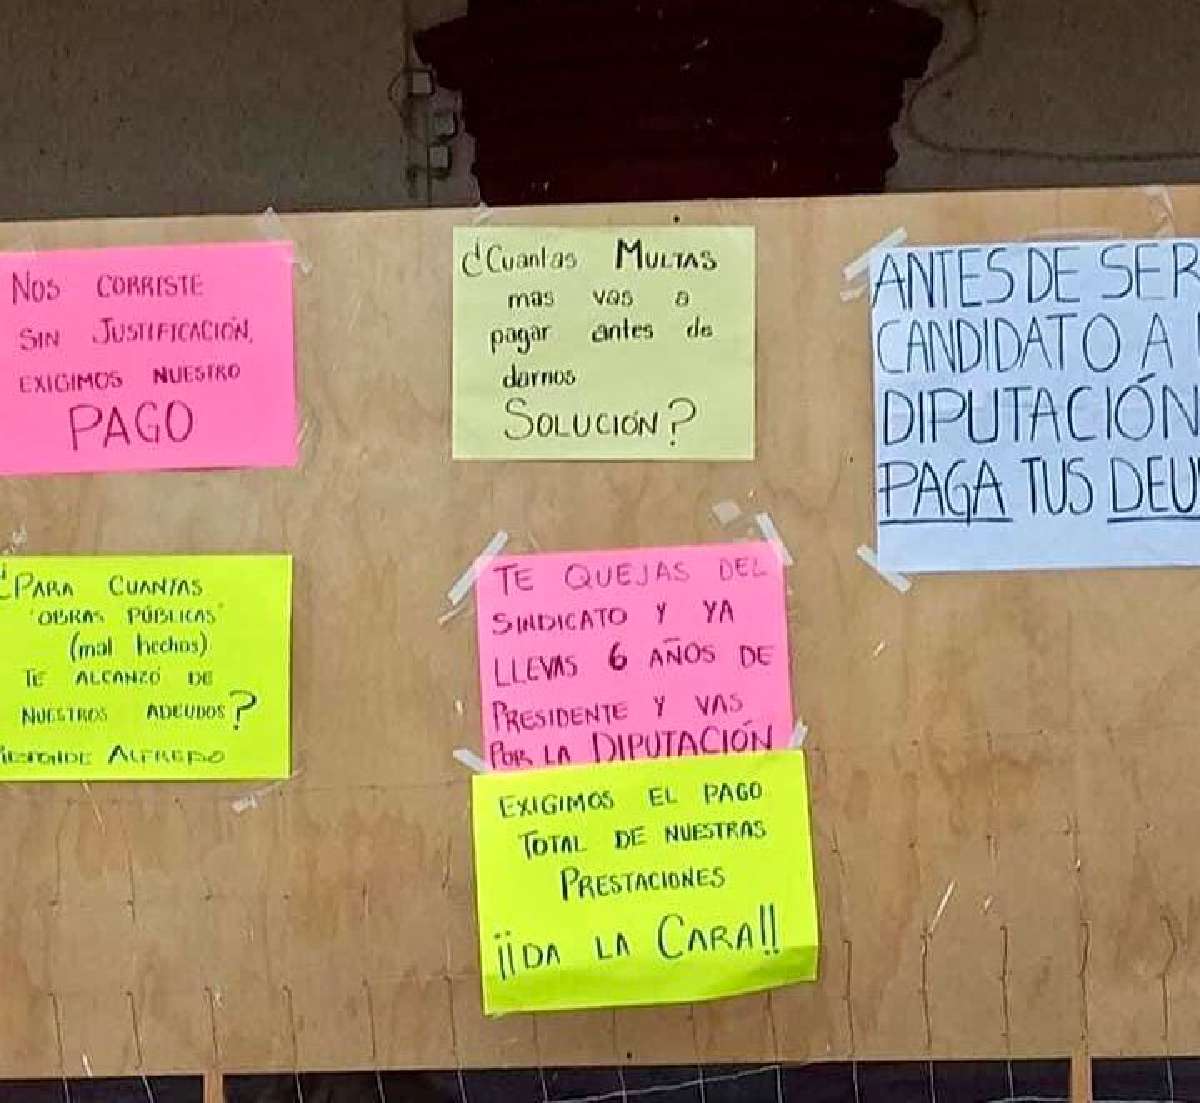 NOS CORRISTE
SIN JUSTIFICACIÓN,
EXIGIMOS NUESTRO
PAGO
¿Cuantas MULTAS
mas vas a
pagar antes de
darnos
SOLUCIÓN?
ANTES DE SER
CANDIDATO A
DIPUTACIÓN
PAGA TUS DEU
¿PARA CUANTAS
"OBRAS PÚBLICAS"
(mal hechas)
TE ALCANZÓ DE
NUESTROS ADEUDOS?
ALFREDO
TE QUEJAS DEL
SINDICATO Y YA
LLEVAS 6 AÑOS DE
PRESIDENTE Y VAS
POR LA DIPUTACIÓN
EXIGIMOS EL PAGO
TOTAL DE NUESTRAS
PRESTACIONES
¡¡DA LA CARA!!